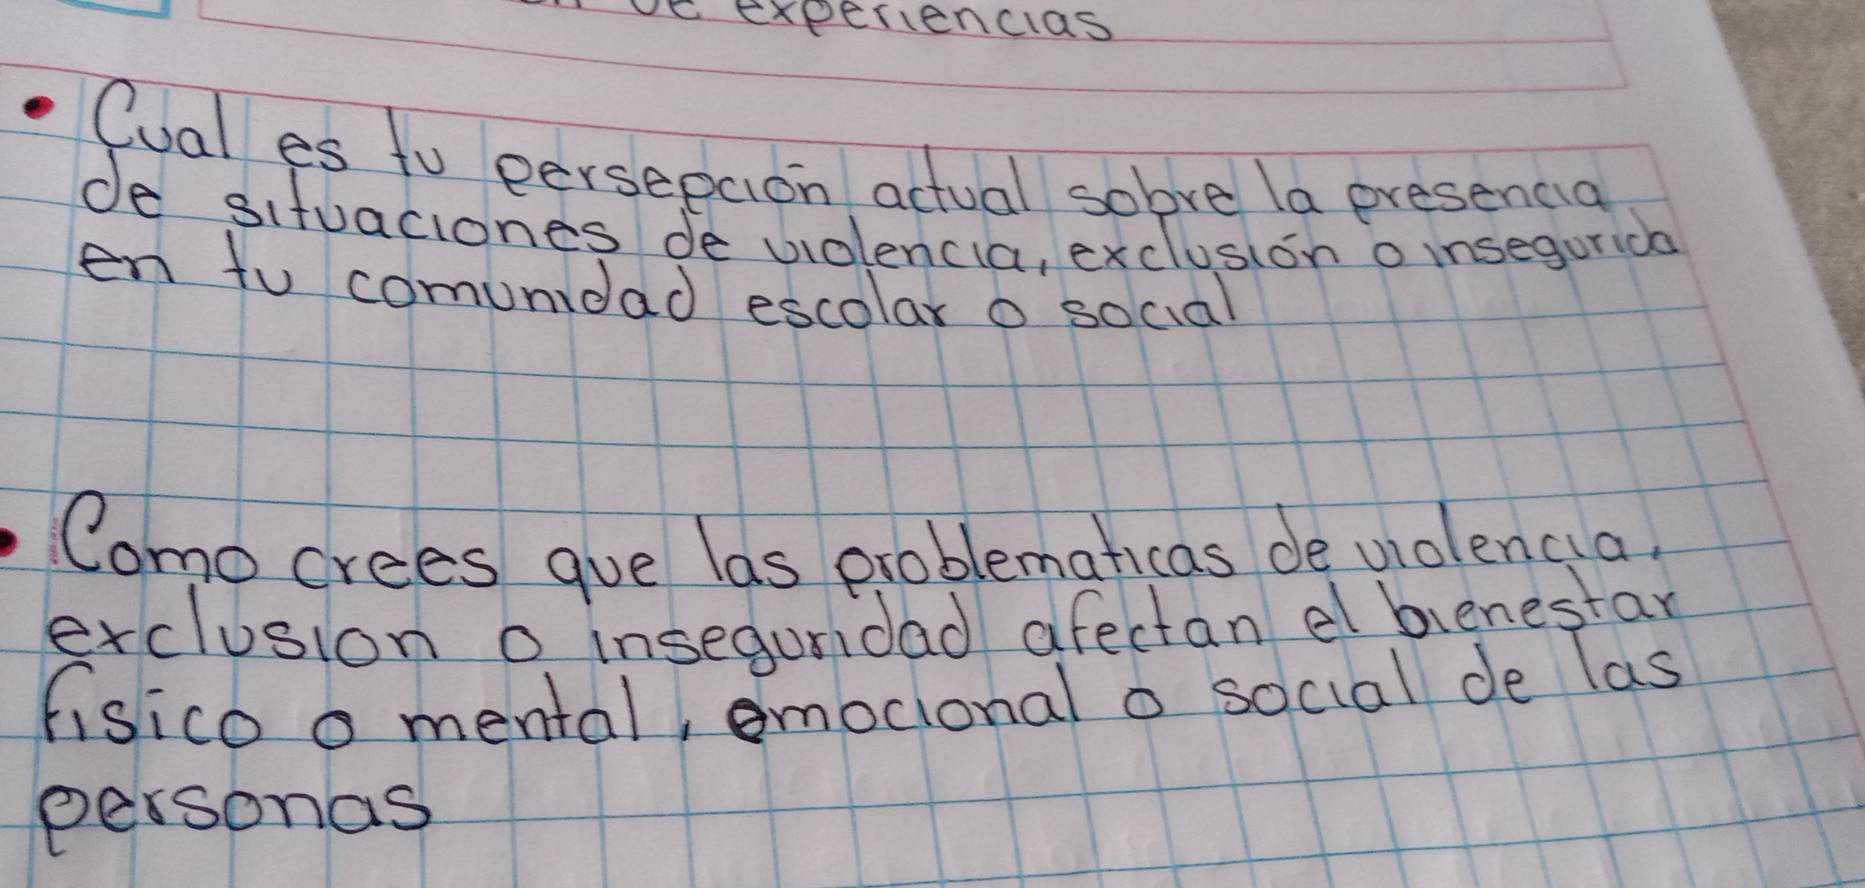 de experiencias
• Cual es tu persepción actual sobre la presencia
de situaciones de violencia, exclusión o insegurida
en tu comunidad escolar o social
• Como crees que las problematicas de violencia,
exclusion o inseguridad afectan el bienestar
fisico o mental, emocional o social de las
personas